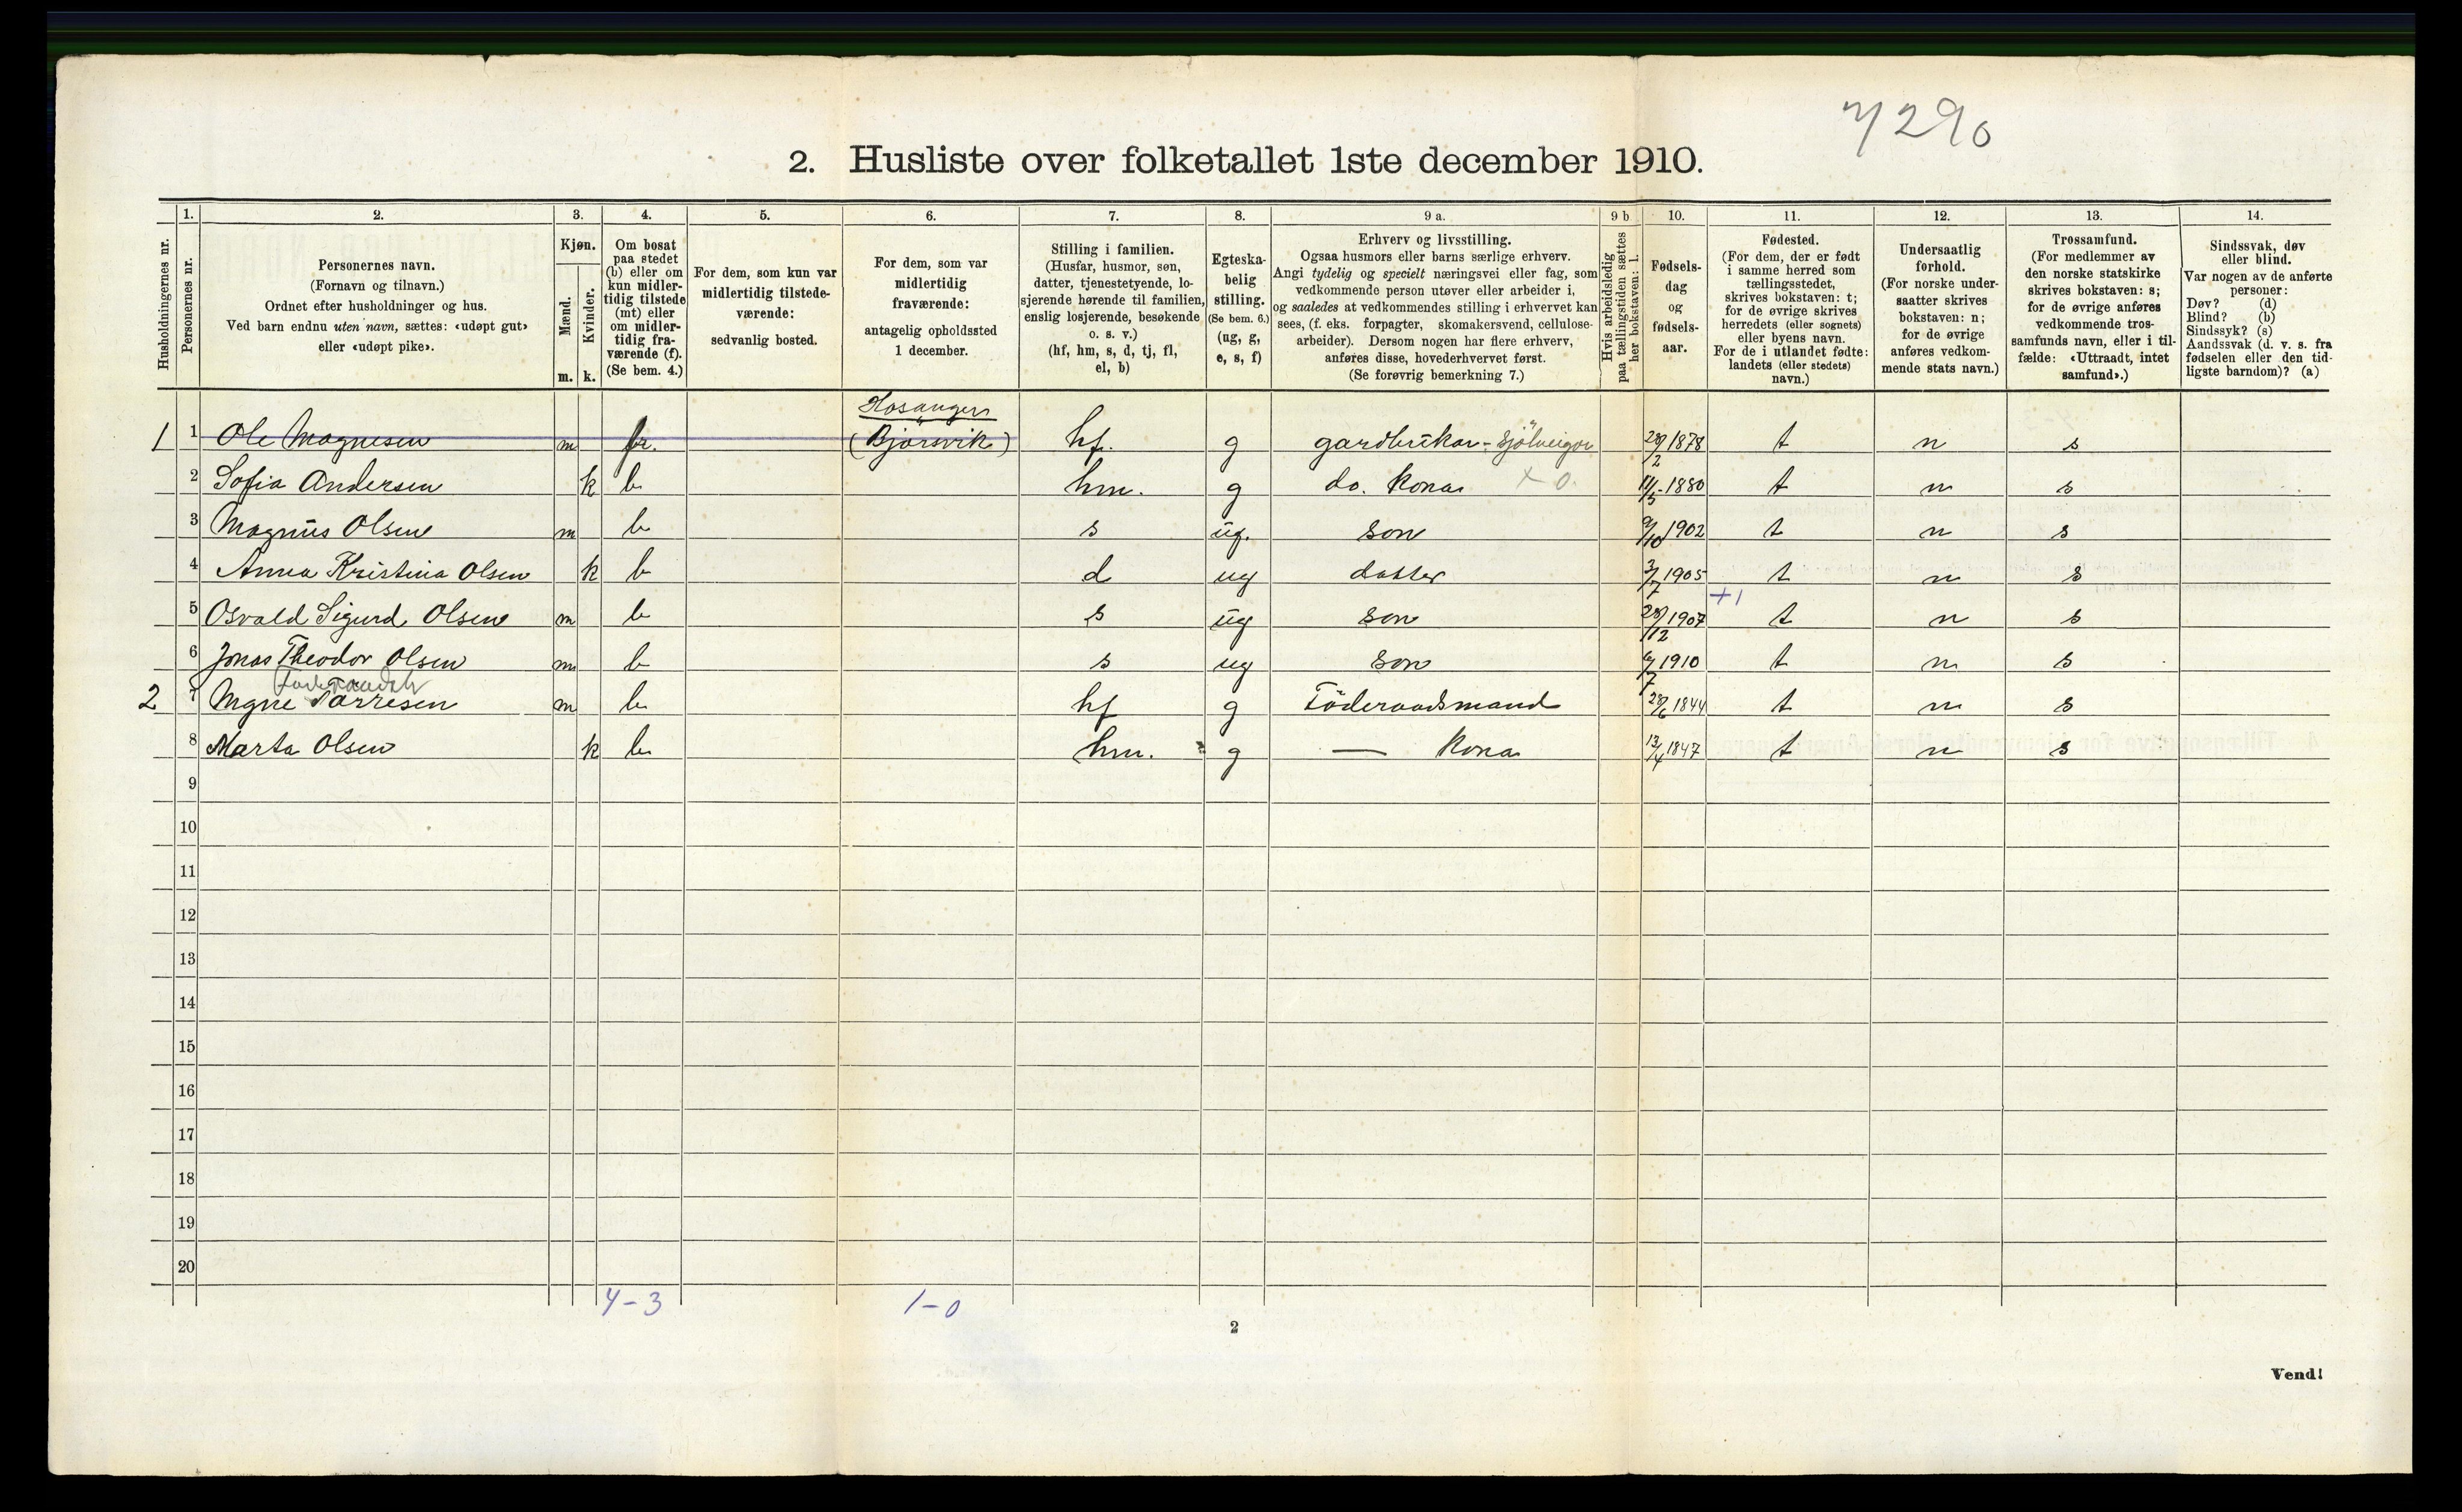 7290
2. Husliste over folketallet 1ste december 1910.
Husholdningernes nr.
1.
Personernes nr.
2.
Personernes navn.
(Fornavn og tilnavn.)
Ordnet efter husholdninger og hus.
Ved barn endnu uten navn, sættes: «udøpt gut»
eller «udøpt pike».
3.
Kjøn.
Mænd.
Kvinder.
m. k.
4.
Om bosat
paa stedet
(b) eller om
kun midler-
tidig tilstede
(mt) eller
om midler-
tidig fra-
værende (f).
(Se bem. 4.)
5.
For dem, som kun var
midlertidig tilstede-
værende:
sedvanlig bosted.
6.
For dem, som var
midlertidig
fraværende:
antagelig opholdssted
1 december.
7.
Stilling i familien.
(Husfar, husmor, søn,
datter, tjenestetyende, lo-
sjerende hørende til familien,
enslig losjerende, besøkende
o. s. v.)
(hf, hm, s, d, tj, fl,
el, b)
8.
Egteska-
belig
stilling.
(Se bem. 6.)
(ug, g,
e, s, f)
9 a.
Erhverv og livsstilling.
Ogsaa husmors eller barns særlige erhverv.
Angi tydelig og specielt næringsvei eller fag, som
vedkommende person utøver eller arbeider i,
og saaledes at vedkommendes stilling i erhvervet kan
sees, (f. eks. forpagter, skomakersvend, cellulose-
arbeider). Dersom nogen har flere erhverv,
anføres disse, hovederhvervet først.
(Se forøvrig bemerkning 7.)
9 b
Hvis arbeidsledig
paa tællingstiden sættes
her bokstaven: l.
10.
Fødsels-
dag
og
fødsels-
aar.
11.
Fødested.
(For dem, der er født
i samme herred som
tællingsstedet,
skrives bokstaven: t;
for de øvrige skrives
herredets (eller sognets)
eller byens navn.
For de i utlandet fødte:
landets (eller stedets)
navn.)
12.
Undersaatlig
forhold.
(For norske under-
saatter skrives
bokstaven: n;
for de øvrige
anføres vedkom-
mende stats navn.)
13.
Trossamfund.
(For medlemmer av
den norske statskirke
skrives bokstaven: s;
for de øvrige anføres
vedkommende tros-
samfunds navn, eller i til-
fælde: «Uttraadt, intet
samfund».)
14.
Sindssvak, døv
eller blind.
Var nogen av de anførte
personer:
Døv? (d)
Blind? (b)
Sindssyk? (s)
Aandssvak (d. v. s. fra
fødselen eller den tid-
ligste barndom)? (a)
Hosanger
1 1 Ole Magnesen m (Bjørsvik) hf. g gardbrukar - Sjølveigar 28/2 1878 t n s
2 Sofia Andersen k b hm. g do. Kona x 0. 11/5 - 1880 t n s
3 Magnus Olsen m b s ug. son 9/10 1902 t n s
4 Anna Kristina Olsen k b d ug datter 3/7 1905 t n s
+1
5 Osvald Sigurd Olsen m b s ug son 28/12 1907 t n s
6 Jonas Theodor Olsen m b s ug son 6/7 1910 t n s
2 7 Mgne Tørresen m b hf g Föderaadsmand 28/6 1844 t n s
8 Marta Olsen k b hm. g — Kona 13/4 1847 t n s
9
10
11
12
13
14
15
16
17
18
19
20
4-3 1-0
2
Vend!